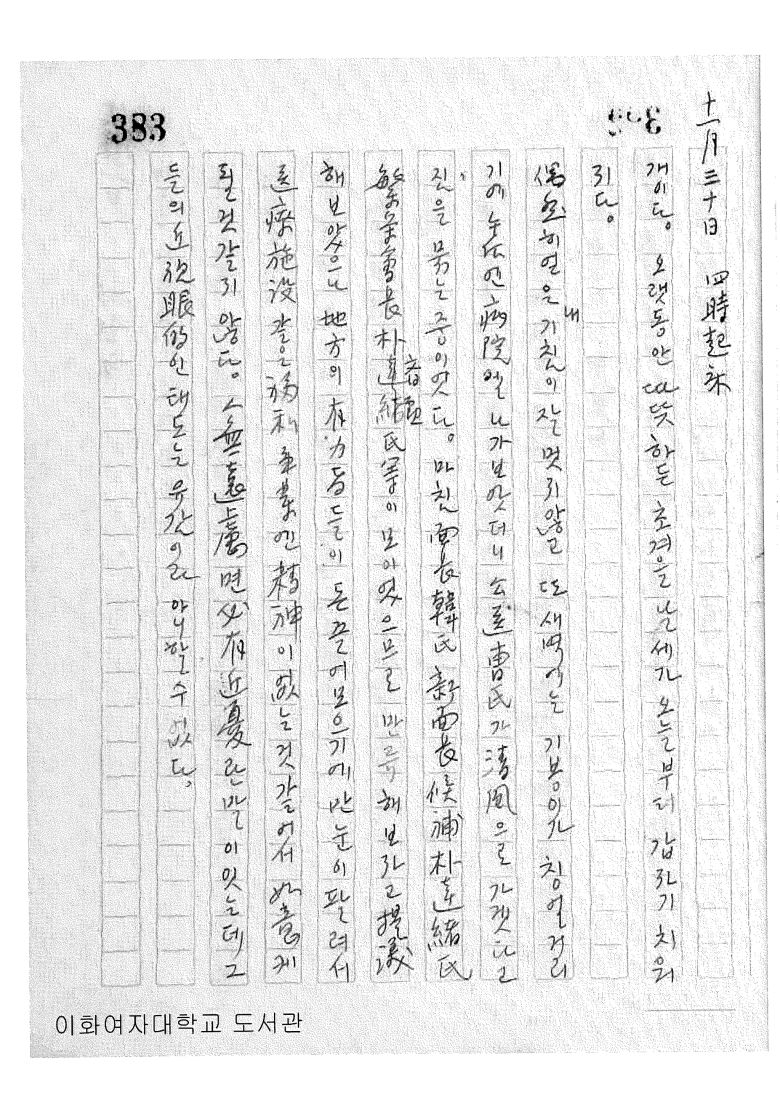 383
十一月三十日 四時起床
개이다. 오랫동안 따뜻하든 초겨을 날세가 오늘부터 갑자기 치워
지다.
偶然히 연은 내 기침이 잘 멋지 않고 또 새벽에는 기봉이가 칭얼거리
기에 病院엘 나가보앗더니 公医 曺氏가 淸風으로 가겟다고
짐을 묶는 중이엇다. 마침 面長 韓氏 新面長候補 朴達緖氏
繁榮會長 朴 氏 等이 모이엇으므로 만류해 보라고 提議
해 보앗으나 地方의 有力者들이 돈 끌어모으기에만 눈이 팔려서
医療施設 같은 福利事業엔 精神이 없는 것 갈어서 如意케
될 것 갈지 않다. 人無遠慮면 必有近憂란 말이 잇는데 그
들의 近視眼的인 태도는 유감이라 아니할 수 없다.
이화여자대학교 도서관